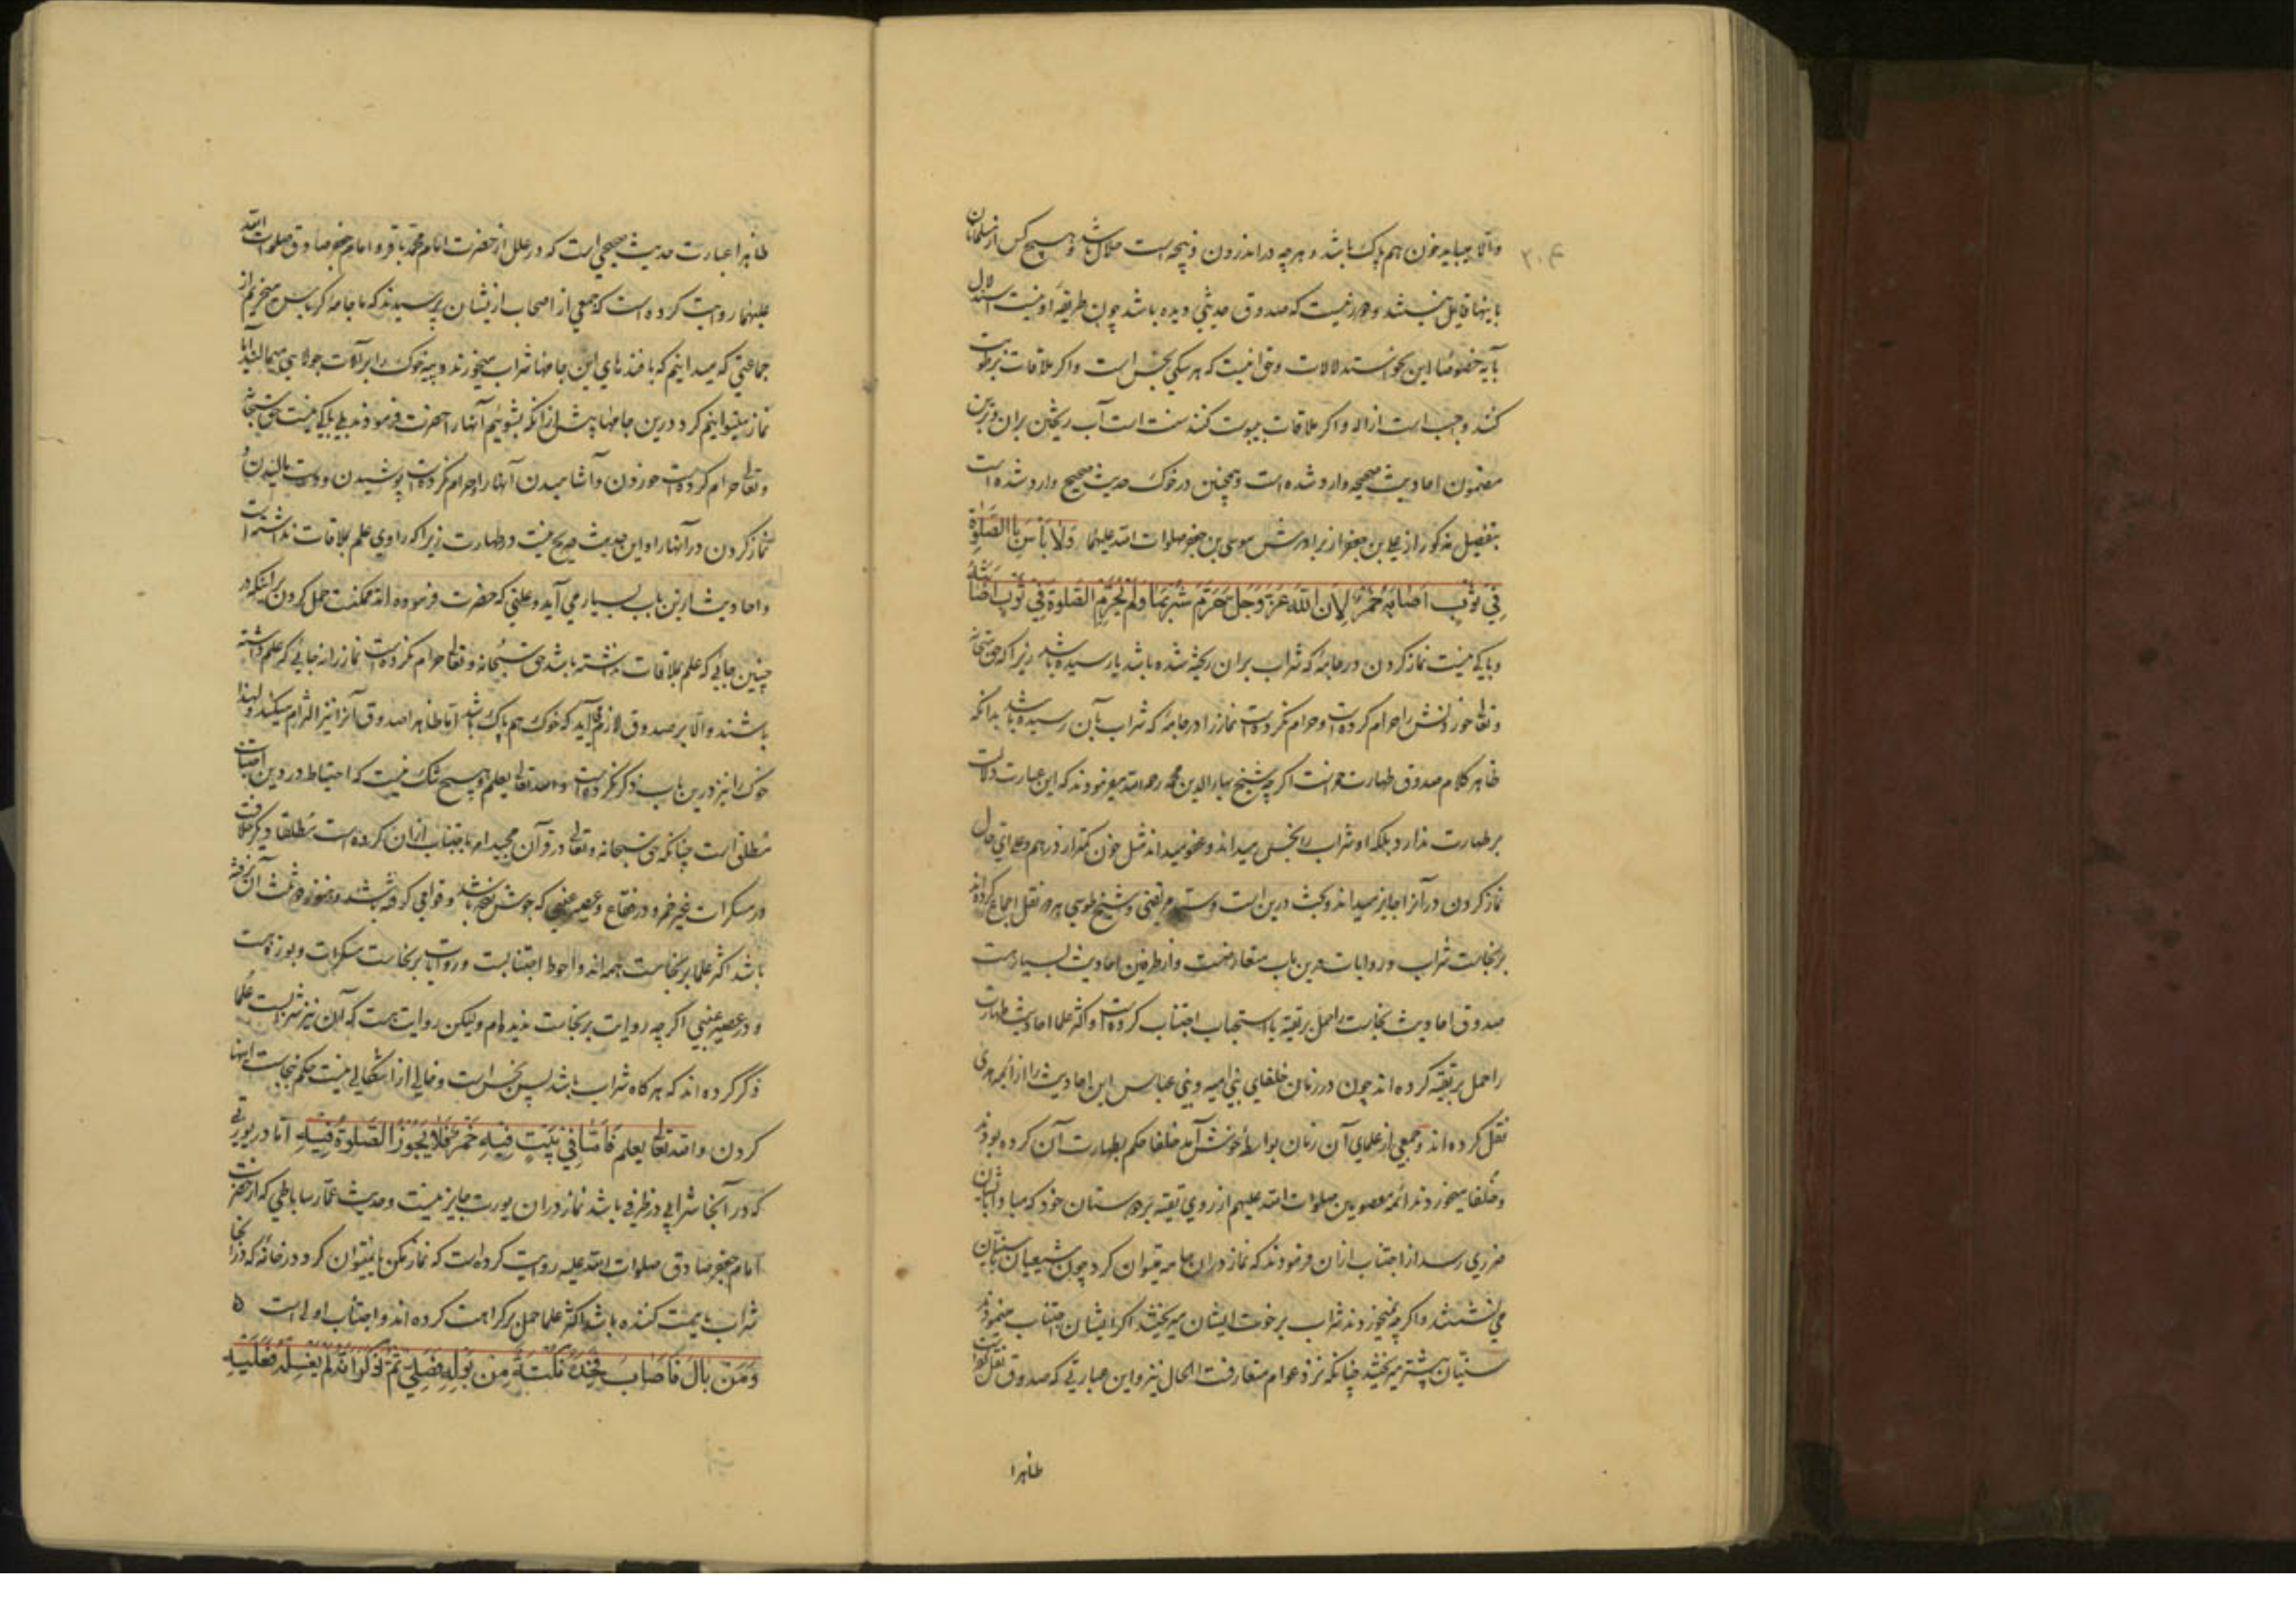 والا میباید خون هم پاک باشد و هر چه در اندرون ذبیحه است حلال باشد و هیچ کس از مسلمانان
باینها قایل نیستند و دور نیست که صدوق حدیثی دیده باشد چون طریقه او نیست استدلال
بآیه خصوصا این نحو استدلالات و حق انیست که هر سکی نجس است و اکر ملاقات برطوبت
کند واجب است ازاله و اکر ملاقات بیبوست کند سنت است آب ریختن بران و برین
مضمون احادیث صحیحه وارد شده است و همچنین در خوک حدیث صحیح وارد شده است
بتفصیل مذکور از علی بن جعفر از برادرش موسی بن جعفر صلوات الله علیهما وَلا بَأسَ بِالصَّلوٰةِ
فِي ثَوبٍ اَصٰابَهُ خَمْرٌ لِاَنَّ اللّٰهَ عَزَّ وَجَلَّ حَرَّمَ شُرْبَهٰا وَلَمْ يُحَرِّمِ الصَّلوٰةَ فِي ثَوْبٍ اَصٰابَتْهُ
و باکی نیست نماز کردن در جامهٔ که شراب بران ریخته شده باشد یا رسیده باشد زیرا که حق سبحانه
و تعالی خوردنش را حرام کرده است و حرام نکرده است نماز را در جامهٔ که شراب بآن رسیده باشد بدانکه
ظاهر کلام صدوق طهارت خمر است اکر چه شیخ بهاء الدین محمد رحمه الله میفرمودند که این عبارت دلالت
بر طهارت ندارد بلکه او شراب را نجس میداند و عفو میداند مثل خون کمتر از درهم و علی ای حال
نماز کردن در آنرا جایز میداند و بحث درین است و سید مرتضی و شیخ طوسی هر دو نقل اجماع کرده اند
بر نجاست شراب و روایات درین باب متعارضست و از طرفین احادیث بسیار هست
صدوق احادیث نجاست را حمل بر تقیه یا استحباب اجتناب کرده است و اکثر علما احادیث طهارت
را حمل بر تقیه کرده اند چون در زمان خلفای بنی امیه و بنی عباس این احادیث را از ائمه هدی
نقل کرده اند و جمعی از علمای آن زمان بواسطه خوش آمد خلفا حکم بطهارت آن کرده بودند
و خلفا میخوردند ائمه معصومین صلوات الله علیهم از روی تقیه بر دوستان خود که مبادا بایشان
ضرری رسد از اجتناب ازان فرمودند که نماز دران جامه میتوان کرد چون شیعیان با سنیان
می نشستند و اکر چه نمیخوردند شراب بر رخوت ایشان میریختند اکر ایشان اجتناب مینمودند
سنیان بیشتر میریختند چنانکه نزد عوام متعارفست الحال نیز و این عبارتی که صدوق نقل کرده است
ظاهرا
ظاهرا عبارت حدیث صحیحی است که در علل از حضرت امام محمد باقر و امام جعفر صادق صلوات الله
علیهما روایت کرده است که جمعی از اصحاب ازیشان پرسیدند که ما جامه کرباس میخریم از
جماعتی که میدانیم که بافنده های این جامها شراب میخورند و پیه خوک را بر آلات جولاهی میمالند آیا
نماز میتوانیم کرد درین جامها پیش از آنکه بشوئیم آنها را حضرت فرمودند بلی باکی نیست حق سبحانه
و تعالی حرام کرده است خوردن و آشامیدن آنها را و حرام نکرده است پوشیدن و دست مالیدن و
نماز کردن در آنها را و این حدیث صریح نیست در طهارت زیرا که راوی علم بملاقات نداشته است
و احادیث ازین باب بسیار می آید و علتی که حضرت فرموده اند ممکنست حمل کردن بر اینکه در
چنین جائی که علم بملاقات نداشته باشد حق سبحانه و تعالی حرام نکرده است نماز را نه جائی که علم داشته
باشند و الا بر صدوق لازم می آید که خوک هم پاک باشد اما ظاهرا صدوق آنرا نیز التزام میکند و لهذا
خوک را نیز درین باب ذکر نکرده است والله تعالی یعلم و هیچ شک نیست که احتیاط در دین اجتناب
مطلق است چنانکه حق سبحانه و تعالی در قرآن مجید امر باجتناب ازان کرده است مطلقا و دیگر خلافست
در مسکرات غیر خمر و در فقاع و عصیر عنبی که بجوش آمده باشد و قوامی گرفته باشد و هنوز دو ثلث آن نرفته
باشد اکثر علما بر نجاست همه اند و احوط اجتنابست و روایات بر نجاست مسکرات و بوزه هست
و در عصیر عنبی اکر چه روایت بر نجاست ندیده ام ولیکن روایت هست که آن نیز شرابست علما
ذکر کرده اند که هر کاه شراب باشد پس نجس است و خالی از اشکالی نیست حکم بنجاست اینها
کردن والله تعالی یعلم فَاَمّٰا فِي بَيْتٍ فِيهِ خَمْرٌ فَلٰا يَجُوزُ الصَّلوٰةُ فِيهِ اما در یورتی
که در آنجا شرابی در ظرفی باشد نماز دران یورت جایز نیست و حدیث عمار ساباطی که از حضرت
امام جعفر صادق صلوات الله علیه روایت کرده است که نماز مکن یا نمیتوان کرد در خانهٔ که در آنجا
شراب یا مست کننده باشد اکثر علما حمل بر کراهت کرده اند و اجتناب اولی است ه
وَمَنْ بٰالَ فَاَصٰابَ فَخِذَهُ نُكْتَةٌ مِنْ بَوْلِهِ فَصَلّٰى ثُمَّ ذَكَرَ اَنَّهُ لَمْ يَغْسِلْهُ فَعَلَيْهِ